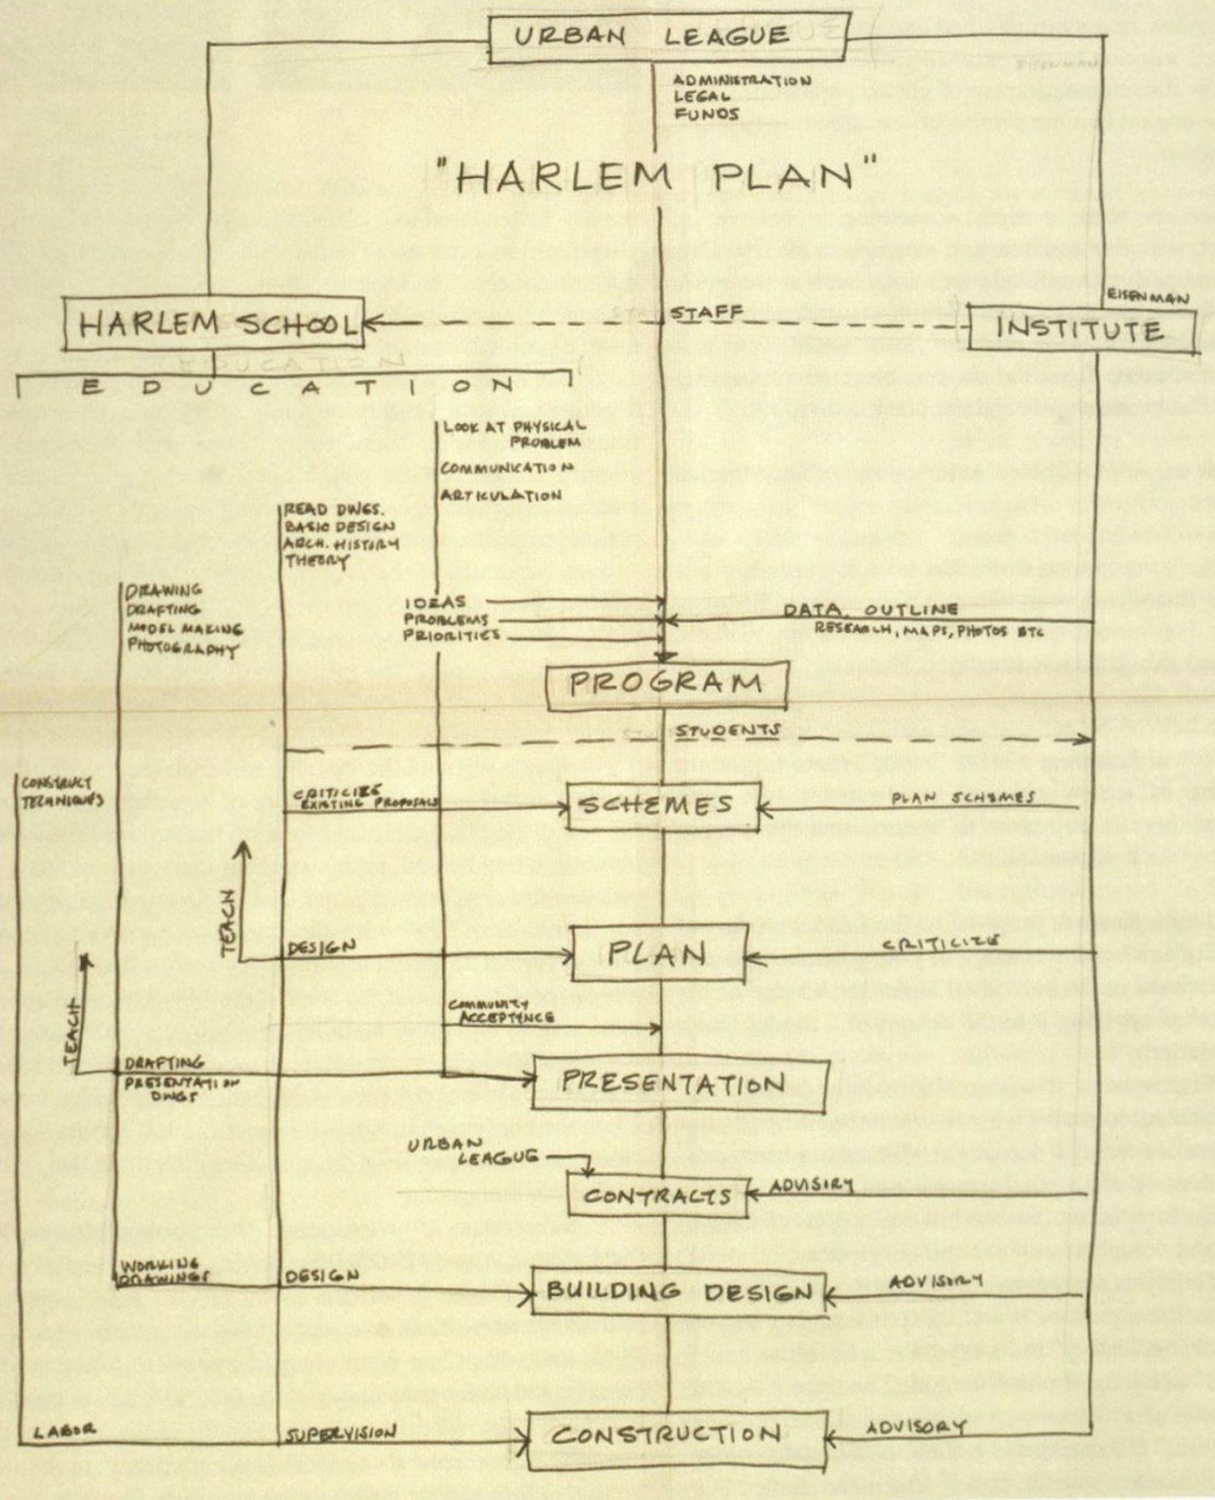 URBAN LEAGUE
ADMINISTRATION
LEGAL
FUNDS
"HARLEM PLAN"
EISENMAN
HARLEM SCHOOL
STAFF
INSTITUTE
EDUCATION
LOOK AT PHYSICAL
PROBLEM
COMMUNICATION
ARTICULATION
READ DWGS.
BASIC DESIGN
ARCH. HISTORY
THEORY
DRAWING
DRAFTING
MODEL MAKING
PHOTOGRAPHY
IDEAS
PROBLEMS
PRIORITIES
DATA, OUTLINE
RESEARCH, MAPS, PHOTOS ETC
PROGRAM
STUDENTS
CONSTRUCT
TECHNIQUES
CRITICIZE
EXISTING PROPOSALS
SCHEMES
PLAN SCHEMES
TEACH
DESIGN
PLAN
CRITICIZE
TEACH
COMMUNITY
ACCEPTENCE
DRAFTING
PRESENTATION
DWGS
PRESENTATION
URBAN
LEAGUE
CONTRACTS
ADVISIRY
WORKING
DRAWINGS
DESIGN
BUILDING DESIGN
ADVISORY
LABOR
SUPERVISION
CONSTRUCTION
ADVISORY